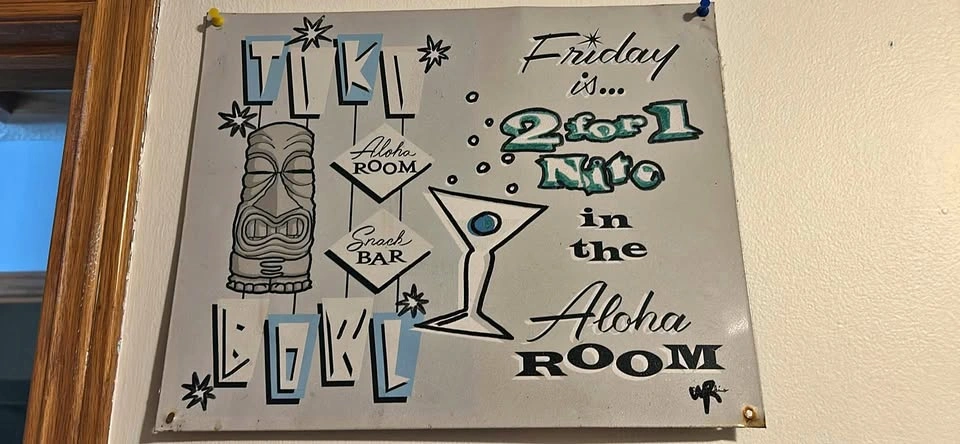 TIKI
Aloha
ROOM
Snack
BAR
BOWL
Friday
is...
2 for 1
Nite
in
the
Aloha
ROOM